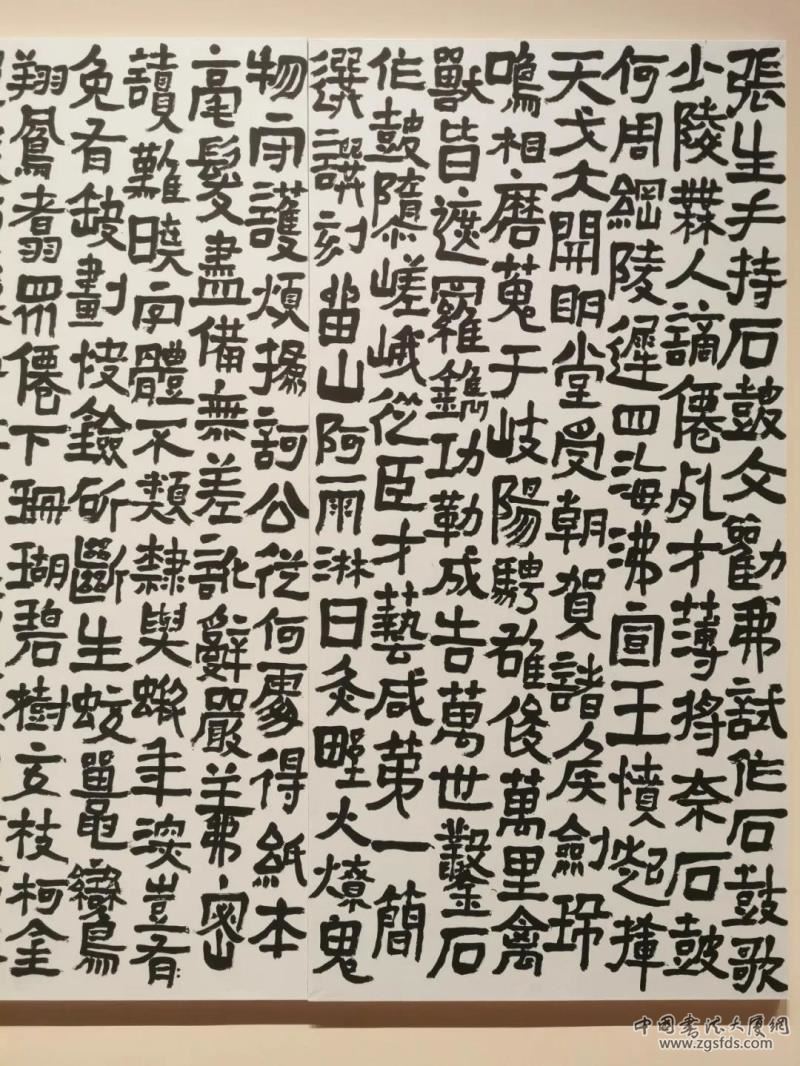 張生手持石鼓文勸我試作石鼓歌
少陵無人謫僊死才薄將奈石鼓
何周綱陵遲四海沸宣王憤起揮
天戈大開明堂受朝賀諸侯劍珮
鳴相磨蒐于岐陽騁雄俊萬里禽
獸皆遮羅鐫功勒成告萬世鑿石
作鼓隳嵯峨從臣才藝咸第一簡
選譔刻留山阿雨淋日炙野火燎鬼
物守護煩撝訶公從何處得紙本
毫髮盡備無差訛辭嚴義密
讀難曉字體不類隸與蝌年深豈有
免有缺畫快劍斫斷生蛟鼉鸞
翔鳳翥眾僊下珊瑚碧樹交枝柯金
中国書法大厦網
www.zgsfds.com